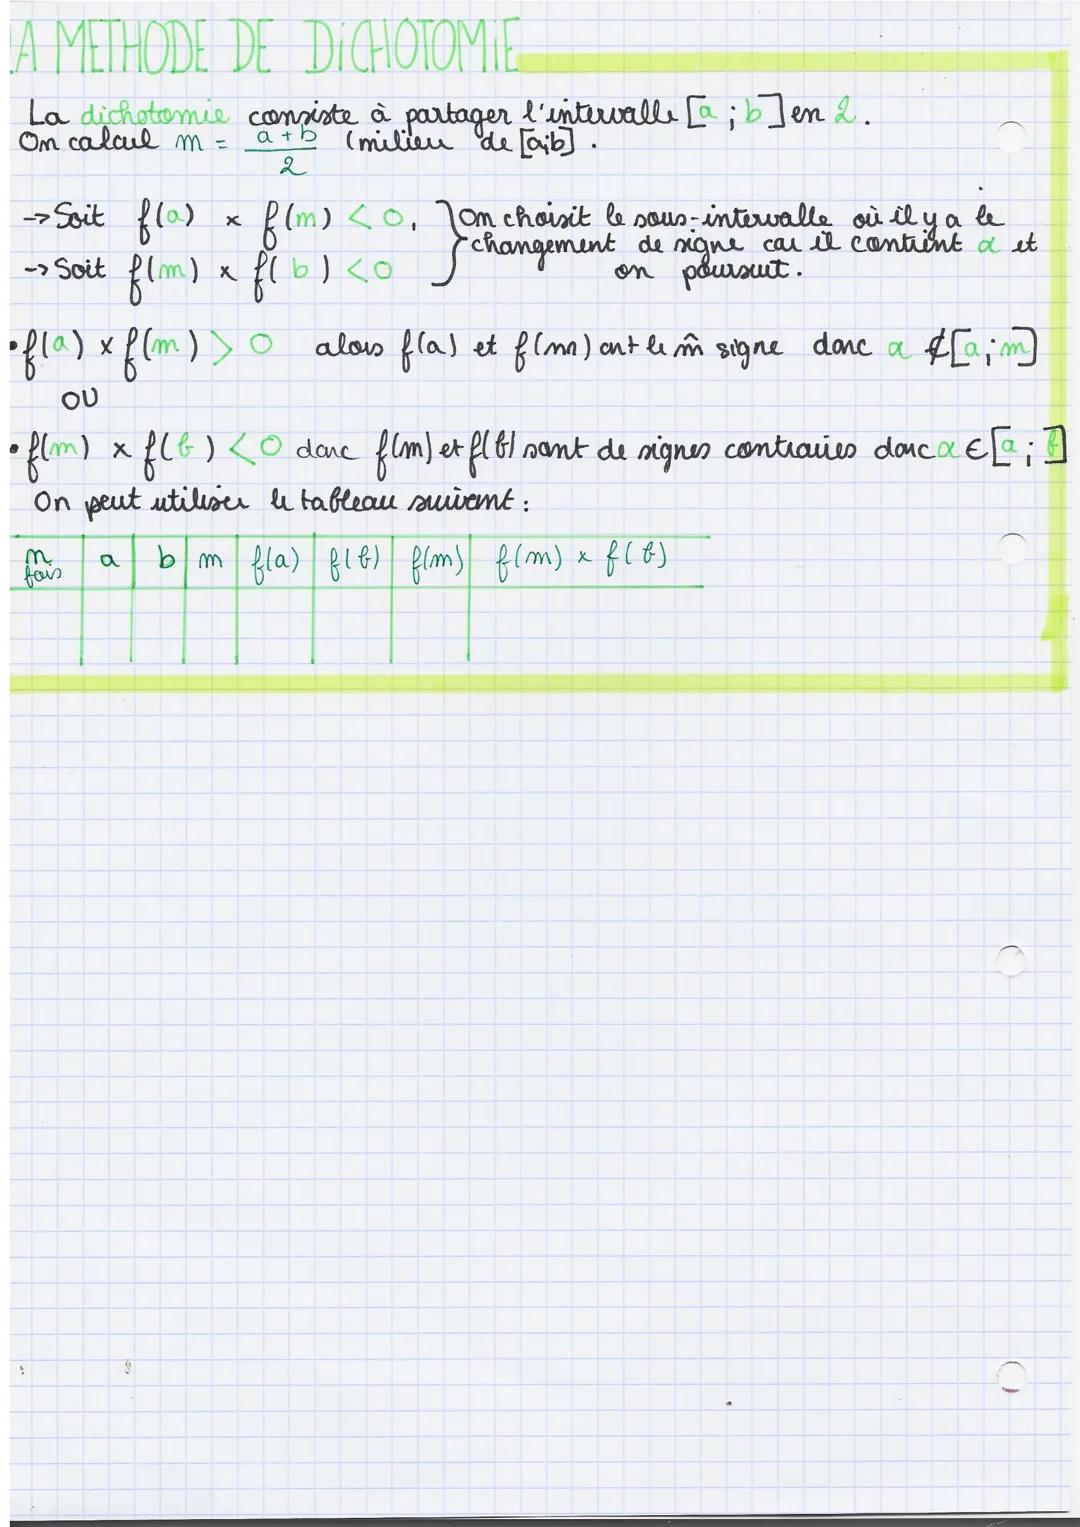 LA METHODE DE DiCHOTOMiE
La dichotomie consiste à partager l'intervalle [a ; b] en 2.
On calcul m = a + b / 2 (milieu de [a;b].
-> Soit f(a) × f(m) < 0, } On choisit le sous-intervalle où il y a le
changement de signe car il contient α et
-> Soit f(m) × f( b ) < 0 on poursuit.
• f(a) × f(m) > 0 alors f(a) et f(m) ont le m̂ signe donc α ∉ [a ; m]
OU
• f(m) × f(b) < 0 donc f(m) et f(b) sont de signes contraires donc α ∈ [a ; b]
On peut utiliser le tableau suivant :
n fois | a | b | m | f(a) | f(b) | f(m) | f(m) × f(b)